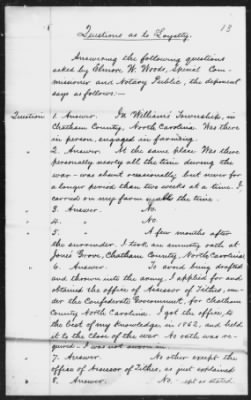 13
Questions as to Loyalty.
Answering the following questions
asked by Elmore W. Woods, Special Com-
missioner and Notary Public, the deponent
says as follows:—
Question 1. Answer. In Williams' Township, in
Chatham County, North Carolina. Was there
in person, engaged in farming.
" 2. Answer. At the same place. Was there
personally nearly all the time during the
war—was about occasionally but never for
a longer period than two weeks at a time. I
carried on my farm all the time.
" 3. Answer. No.
" 4. " No.
" 5. " A few months after
the surrender I took an amnesty oath at
Jones' Grove, Chatham County, North Carolina.
" 6. Answer. To avoid being drafted
and thrown into the army, I applied for and
obtained the office of Assessor of Tithes, un-
der the Confederate Government, for Chatham
County North Carolina. I got the office, to
the best of my knowledge, in 1862, and held
it to the close of the war. No oath was re-
quired—I was not sworn in.
" 7. Answer. No other except the
office of Assessor of Tithes, as just explained
" 8. Answer. No. as stated.